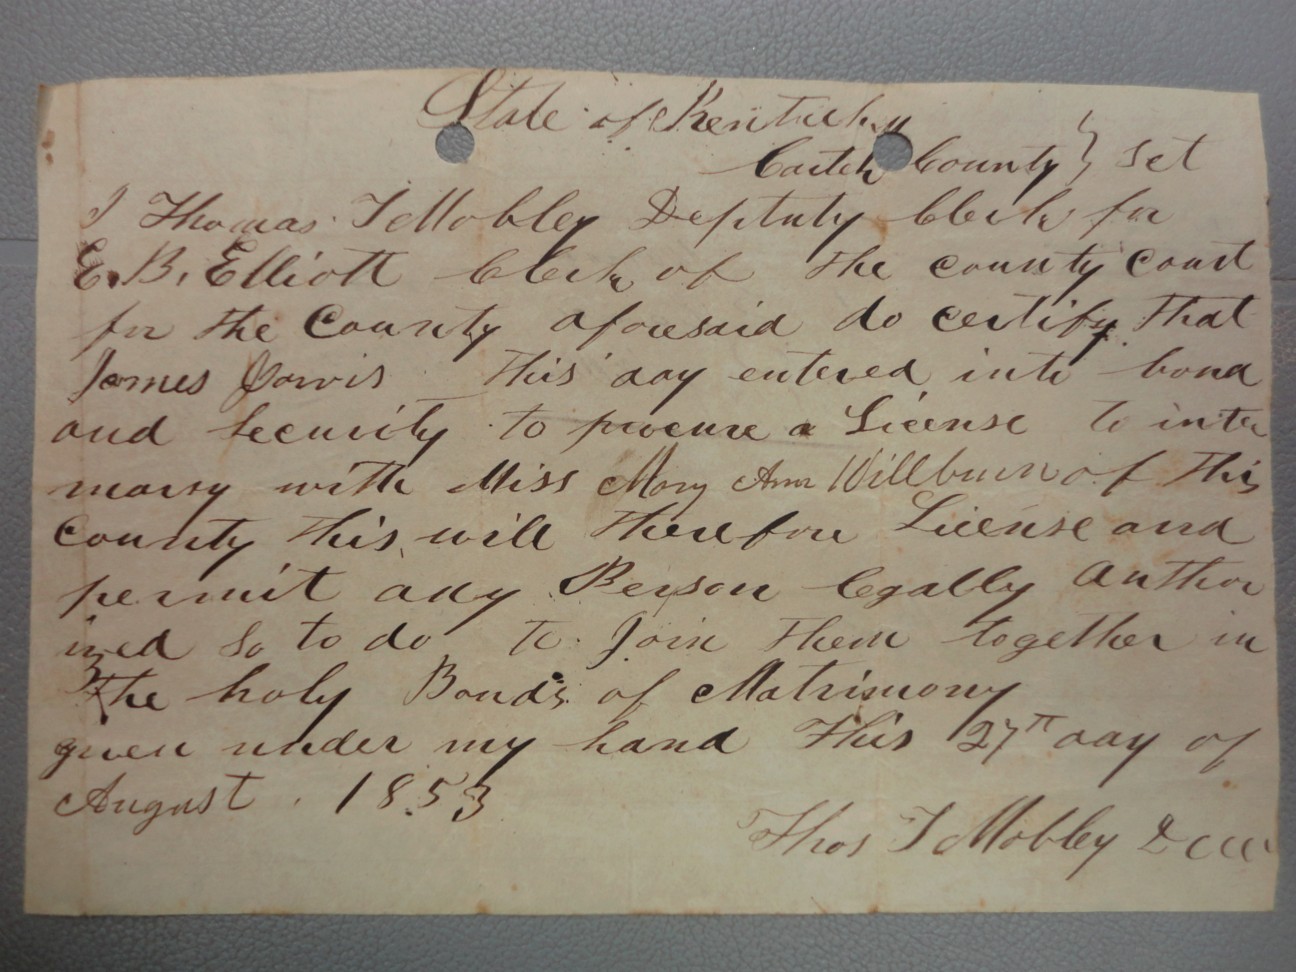 State of Kentucky
Carter County } Set
I Thomas T Mobley Deptuty Clerk for
E. B. Elliott Clerk of the county court
for the County aforesaid do certify that
James Jarvis this day entered into bond
and Security to procure a License to inter
marry with Miss Mary Ann Willburn of this
County this will therefore License and
permit any Person legally Author
ized So to do to Join them together in
the holy Bonds of Matrimony
given under my hand this 27th day of
August . 1853
Thos T Mobley D C